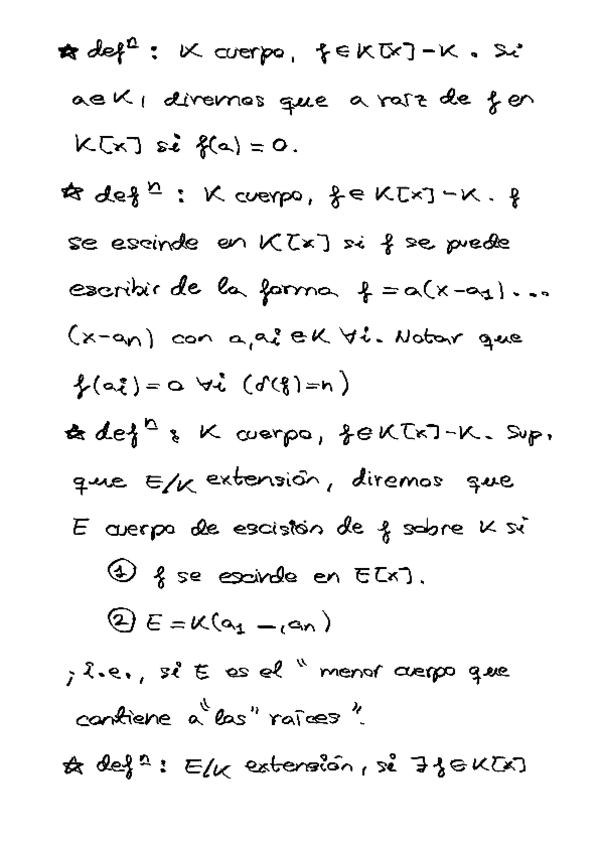 ☆ defⁿ : K cuerpo, f ∈ K[x] - K . Si
a ∈ K, diremos que a raíz de f en
K[x] si f(a) = 0.
☆ defⁿ : K cuerpo, f ∈ K[x] - K. f
se escinde en K[x] si f se puede
escribir de la forma f = a(x-a₁)...
(x-aₙ) con a, aᵢ ∈ K ∀i. Notar que
f(aᵢ) = 0 ∀i (∂(f) = n)
☆ defⁿ : K cuerpo, f ∈ K[x] - K. Sup.
que E/K extensión, diremos que
E cuerpo de escisión de f sobre K si
① f se escinde en E[x].
② E = K(a₁ -, aₙ)
; i.e., si E es el " menor cuerpo que
contiene a "las" raíces ".
☆ defⁿ : E/K extensión, si ∃ f ∈ K[x]